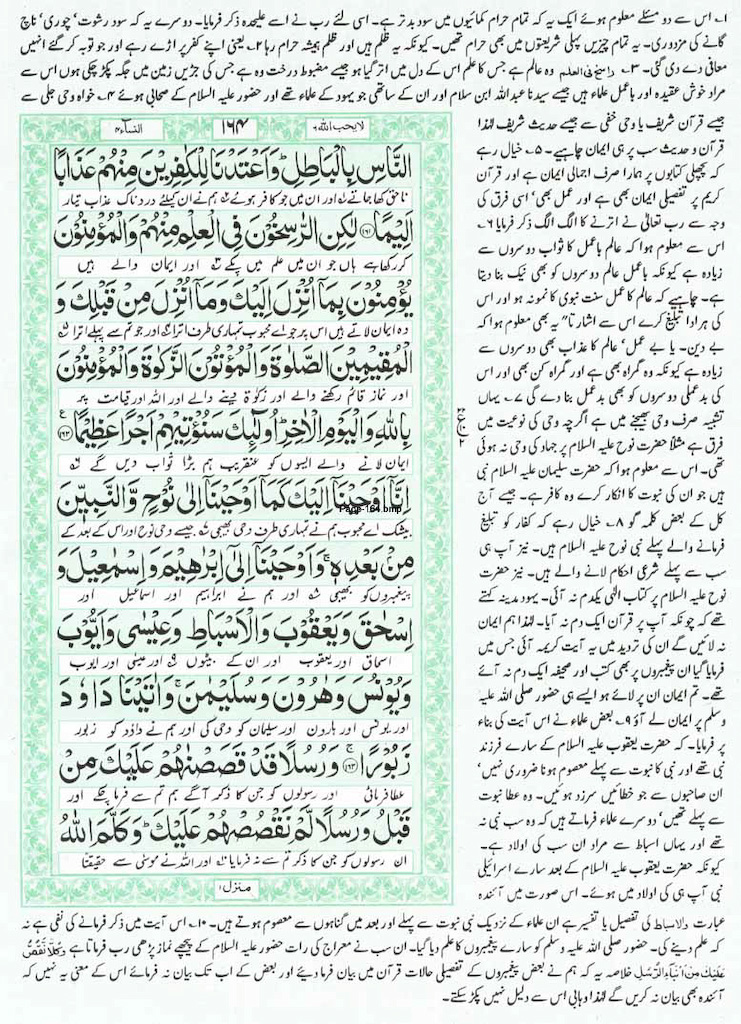 ۱؎ اس سے دو مسئلے معلوم ہوئے ایک یہ کہ تمام حرام کمائیوں میں سود بدتر ہے۔ اسی لئے رب نے اسے علیحدہ ذکر فرمایا۔ دوسرے یہ کہ سود رشوت' چوری' ناچ
گانے کی مزدوری۔ یہ تمام چیزیں پہلی شریعتوں میں بھی حرام تھیں۔ کیونکہ یہ ظلم ہیں اور ظلم ہمیشہ حرام رہا ۲؎ یعنی اپنے کفر پر اڑے رہے اور جو توبہ کر گئے انہیں
معافی دے دی گئی۔ ۳؎ راسخ فی العلم وہ عالم ہے جس کا علم اس کے دل میں اتر گیا ہو جیسے مضبوط درخت وہ ہے جس کی جڑیں زمین میں جگہ پکڑ چکی ہوں اس سے
مراد خوش عقیدہ اور باعمل علماء ہیں جیسے سیدنا عبداللہ ابن سلام اور ان کے ساتھی جو یہود کے علماء تھے اور حضور علیہ السلام کے صحابی ہوئے ۴؎ خواہ وحی جلی سے
لایحب اللہ ۶
۱۶۴
النسآء ۴
النَّاسِ بِالْبَاطِلِ ؕ وَاَعْتَدْنَا لِلْكٰفِرِيْنَ مِنْهُمْ عَذَابًا
ناحق کھا جاتے اور ان میں جو کافر ہوئے ہم نے ان کیلئے دردناک عذاب تیار
اَلِيْمًا ﴿۱۶۱﴾ لٰكِنِ الرّٰسِخُوْنَ فِي الْعِلْمِ مِنْهُمْ وَالْمُؤْمِنُوْنَ
کر رکھا ہے ہاں جو ان میں علم میں پکے اور ایمان والے ہیں
يُؤْمِنُوْنَ بِمَاۤ اُنْزِلَ اِلَيْكَ وَمَاۤ اُنْزِلَ مِنْ قَبْلِكَ وَ
وہ ایمان لاتے ہیں اس پر جو اے محبوب تمہاری طرف اترا اور جو تم سے پہلے اترا
الْمُقِيْمِيْنَ الصَّلٰوةَ وَالْمُؤْتُوْنَ الزَّكٰوةَ وَالْمُؤْمِنُوْنَ
اور نماز قائم رکھنے والے اور زکوٰۃ دینے والے اور اللہ اور قیامت پر
بِاللّٰهِ وَالْيَوْمِ الْاٰخِرِ ؕ اُولٰٓئِكَ سَنُؤْتِيْهِمْ اَجْرًا عَظِيْمًا ﴿۱۶۲﴾
ایمان لانے والے ایسوں کو عنقریب ہم بڑا ثواب دیں گے
اِنَّاۤ اَوْحَيْنَاۤ اِلَيْكَ كَمَاۤ اَوْحَيْنَاۤ اِلٰى نُوْحٍ وَّالنَّبِيّٖنَ
Page-164.bmp
بیشک اے محبوب ہم نے تمہاری طرف وحی بھیجی جیسے وحی نوح اور اس کے بعد کے
مِنْۢ بَعْدِهٖ ۚ وَاَوْحَيْنَاۤ اِلٰۤى اِبْرٰهِيْمَ وَاِسْمٰعِيْلَ وَ
پیغمبروں کو بھیجی اور ہم نے ابراہیم اور اسماعیل اور
اِسْحٰقَ وَيَعْقُوْبَ وَالْاَسْبَاطِ وَعِيْسٰى وَاَيُّوْبَ
اسحاق اور یعقوب اور ان کے بیٹوں اور عیسیٰ اور ایوب
وَيُوْنُسَ وَهٰرُوْنَ وَسُلَيْمٰنَ ۚ وَاٰتَيْنَا دَاوٗدَ
اور یونس اور ہارون اور سلیمان کو وحی کی اور ہم نے داؤد کو زبور
زَبُوْرًا ﴿۱۶۳﴾ وَرُسُلًا قَدْ قَصَصْنٰهُمْ عَلَيْكَ مِنْ
عطا فرمائی اور رسولوں کو جن کا ذکر آگے ہم تم سے فرما چکے اور
قَبْلُ وَرُسُلًا لَّمْ نَقْصُصْهُمْ عَلَيْكَ ؕ وَكَلَّمَ اللّٰهُ
ان رسولوں کو جن کا ذکر تم سے نہ فرمایا اور اللہ نے موسیٰ سے حقیقتا
منزل ۱
جیسے قرآن شریف یا وحی خفی سے جیسے حدیث شریف لہٰذا
قرآن و حدیث سب پر ہی ایمان چاہیے۔ ۵؎ خیال رہے
کہ پچھلی کتابوں پر ہمارا صرف اجمالی ایمان ہے اور قرآن
کریم پر تفصیلی ایمان بھی ہے اور عمل بھی' اسی فرق کی
وجہ سے رب تعالیٰ نے اترنے کا الگ الگ ذکر فرمایا ۶؎
اس سے معلوم ہوا کہ عالم باعمل کا ثواب دوسروں سے
زیادہ ہے کیونکہ باعمل عالم دوسروں کو بھی نیک بنا دیتا
ہے۔ چاہیے کہ عالم کا عمل سنت نبوی کا نمونہ ہو اور اس
کی ہر ادا تبلیغ کرے اس سے اشارتا" یہ بھی معلوم ہوا کہ
بے دین۔ یا بے عمل' عالم کا عذاب بھی دوسروں سے
زیادہ ہے کیونکہ وہ گمراہ بھی ہے اور گمراہ کن بھی اور اس
کی بدعملی دوسروں کو بھی بدعمل بنا دے گی ۷؎ یہاں
تشبیہ صرف وحی بھیجنے میں ہے اگرچہ وحی کی نوعیت میں
فرق ہے مثلاً حضرت نوح علیہ السلام پر جہاد کی وحی نہ ہوئی
تھی۔ اس سے معلوم ہوا کہ حضرت سلیمان علیہ السلام نبی
ہیں جو ان کی نبوت کا انکار کرے وہ کافر ہے۔ جیسے آج
کل کے بعض کلمہ گو ۸؎ خیال رہے کہ کفار کو تبلیغ
فرمانے والے پہلے نبی نوح علیہ السلام ہیں۔ نیز آپ ہی
سب سے پہلے شرعی احکام لانے والے ہیں۔ نیز حضرت
نوح علیہ السلام پر کتاب الٰہی یکدم نہ آئی۔ یہود مدینہ کہتے
تھے کہ چونکہ آپ پر قرآن ایک دم نہ آیا۔ لہٰذا ہم ایمان
نہ لائیں گے ان کی تردید میں یہ آیت کریمہ آئی جس میں
فرمایا گیا ان پیغمبروں پر بھی کتب اور صحیفہ ایک دم نہ آئے
تھے۔ تم ایمان ان پر لائے ہو ایسے ہی حضور صلی اللہ علیہ
وسلم پر ایمان لے آؤ ۹؎ بعض علماء نے اس آیت کی بناء
پر فرمایا۔ کہ حضرت یعقوب علیہ السلام کے سارے فرزند
نبی تھے اور نبی کا نبوت سے پہلے معصوم ہونا ضروری نہیں'
ان صاحبوں سے جو خطائیں سرزد ہوئیں۔ وہ عطا نبوت
سے پہلے تھیں' دوسرے علماء فرماتے ہیں کہ وہ سب نبی نہ
تھے اور یہاں اسباط سے مراد ان سب کی اولاد ہے۔
کیونکہ حضرت یعقوب علیہ السلام کے بعد سارے اسرائیلی
نبی آپ ہی کی اولاد میں ہوئے۔ اس صورت میں آئندہ
عبارت والاسباط کی تفصیل یا تفسیر ہے ان علماء کے نزدیک نبی نبوت سے پہلے اور بعد میں گناہوں سے معصوم ہوتے ہیں۔ ۱۰؎ اس آیت میں ذکر فرمانے کی نفی ہے نہ
کہ علم دینے کی۔ حضور صلی اللہ علیہ وسلم کو سارے پیغمبروں کا علم دیا گیا۔ ان سب نے معراج کی رات حضور علیہ السلام کے پیچھے نماز پڑھی رب فرماتا ہے وَكُلًّا نَّقُصُّ
عَلَيْكَ مِنْ اَنْۢبَآءِ الرُّسُلِ خلاصہ یہ کہ ہم نے بعض پیغمبروں کے تفصیلی حالات قرآن میں بیان فرما دیئے اور بعض کے اب تک بیان نہ فرمائے اس کے معنی یہ نہیں کہ
آئندہ بھی بیان نہ کریں گے لہٰذا وہابی اس سے دلیل نہیں پکڑ سکتے۔